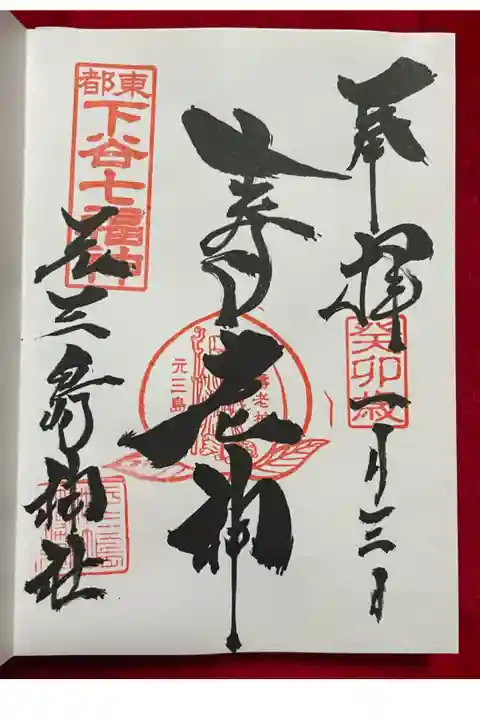 奉拝
癸卯歳
一月三日
寿老神
寿老神
元三島
東都
下谷七福神
元三島神社